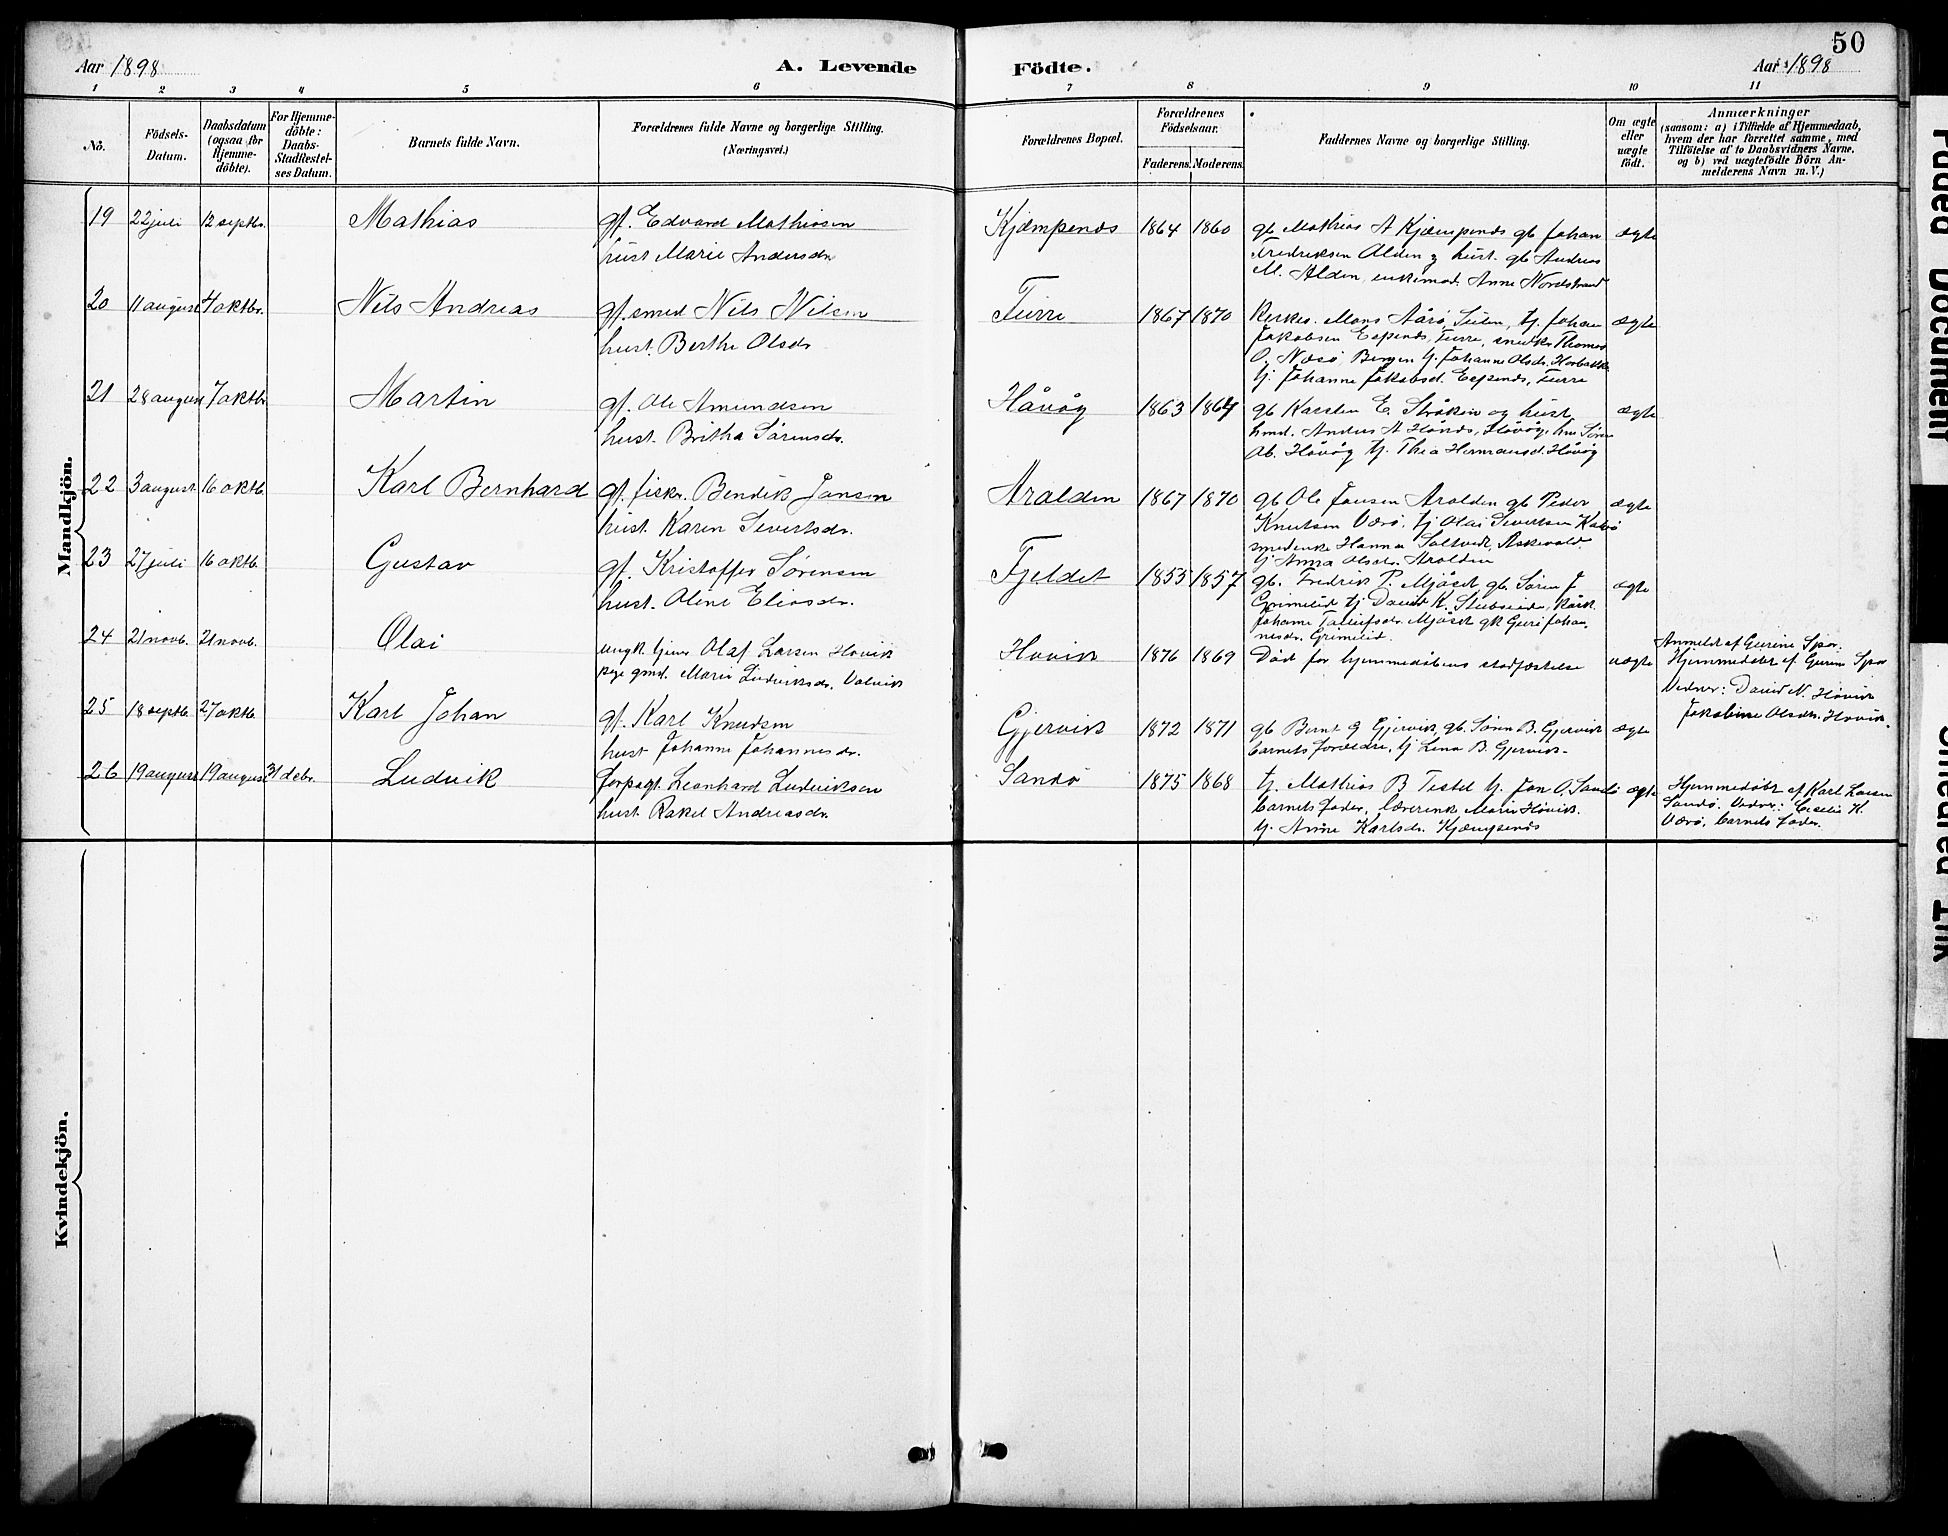 50
Aar 1898
A. Levende
Födte.
Aar 1898
1 2 3 4 5 6 7 8 9 10 11
No.
Födsels-
Datum.
Daabsdatum
(ogsaa for
Hjemme-
döbte).
For Hjemme-
döbte:
Daabs-
Stadfæstel-
ses Datum.
Barnets fulde Navn.
Forældrenes fulde Navne og borgerlige Stilling.
(Næringsvei.)
Forældrenes Bopæl.
Forældrenes
Födselsaar.
Faderens. Moderens.
Faddernes Navne og borgerlige Stilling.
Om ægte
eller
uægte
födt.
Anmærkninger
(saasom: a) i Tilfælde af Hjemmedaab,
hvem der har forrettet samme, med
Tilföielse af to Daabsvidners Navne,
og b) ved uægtefödte Börn An-
melderens Navn m. V.)
Mandkjön.
19 22 juli 12 septbr. Mathias gf. Edvard Mathiasen
hust Marie Andersdr.
Kjempenes 1864 1860 gb Mathias A Kjempenes gb Johan
Fredriksen Alden g hust. gb Andreas
M. Alden, enkemad. Anne Nordstrand
ægte
20 11 august 4 oktbr. Nils Andreas gf. smed Nils Nilsen
hust. Berthe Olsdr.
Furre 1867 1870 Kirkes. Mons Aårø, tj. Johan
Jakobsen Espenes, Furre, snedk. Thomas
O. Næsø Bergen tj. Johanne Olsdr.
tj. Johanne Jakobsd. Espenes, Furre
ægte
21 28 august 7 oktbr. Martin gf. Ole Amundsen
hust. Britha Sørensdr.
Håvåg 1863 1864 gb Karsten E. Stråken og hust
Anders A Håvåg,
Ob. Håvåg tj. Thea Hermansd. Håvåg
ægte
22 3 august 16 oktb. Karl Bernhard gf. fisk. Bendik Jansen
hust. Karen Sivertsdr.
Aralden 1867 1870 gb Ole Jansen Aralden gb Peder
Knutsen Værø, tj Olai Sivertsen
smedenke Hanna Saltvedt, Askevold.
tj Anna Olsdr. Aralden
ægte
23 27 juli 16 oktb. Gustav gf. Kristoffer Sørensen
hust. Oline Eliasdr.
Fjeldet 1855 1857 gb. Fredrik P. Mjåset gb. Søren J
Grimelid tj David K.
Johanne Mjåset gk Guri Johan-
nesdr. Grimelid.
ægte
24 21 novb. 21 novb. Olai ungk. tjener Olaf Larsen Hovik
pige gmd. Marie Ludviksdr. Valvik
Hovik 1876 1869 Död for hjemmedåbens stadfæstelse uægte
Anmeldt af Gurine
Hjemmedöbt af Gurine
Vidner: David N. Håvik
Jakobine Olsdr. Hovik.
25 18 septb. 27 oktb. Karl Johan gf. Karl Knudsen
hust Johanne Johannesdr.
Gjervik 1872 1871 gb Bernt G Gjervik, gb. Sönen B. Gjervik
barnets forældre, tj Lena B. Gjervik.
ægte
26 19 august 19 august 31 debr. Ludvik forpagt. Leonhard Ludviksen
hust. Rakel Andreasdr.
Sandø 1875 1868 tj. Mathias B Tistel tj. Jon O. Sandø
barnets fader, lærerenk Marie Håvik.
tj. Anne Karlsdr. Kjempenes
ægte
Hjemmedöbt af Karl Larsen
Sandø. Vidner: Cecilie K.
Værø, barnets fader.
Kvindekjön.
Faded Document
Smeared Ink